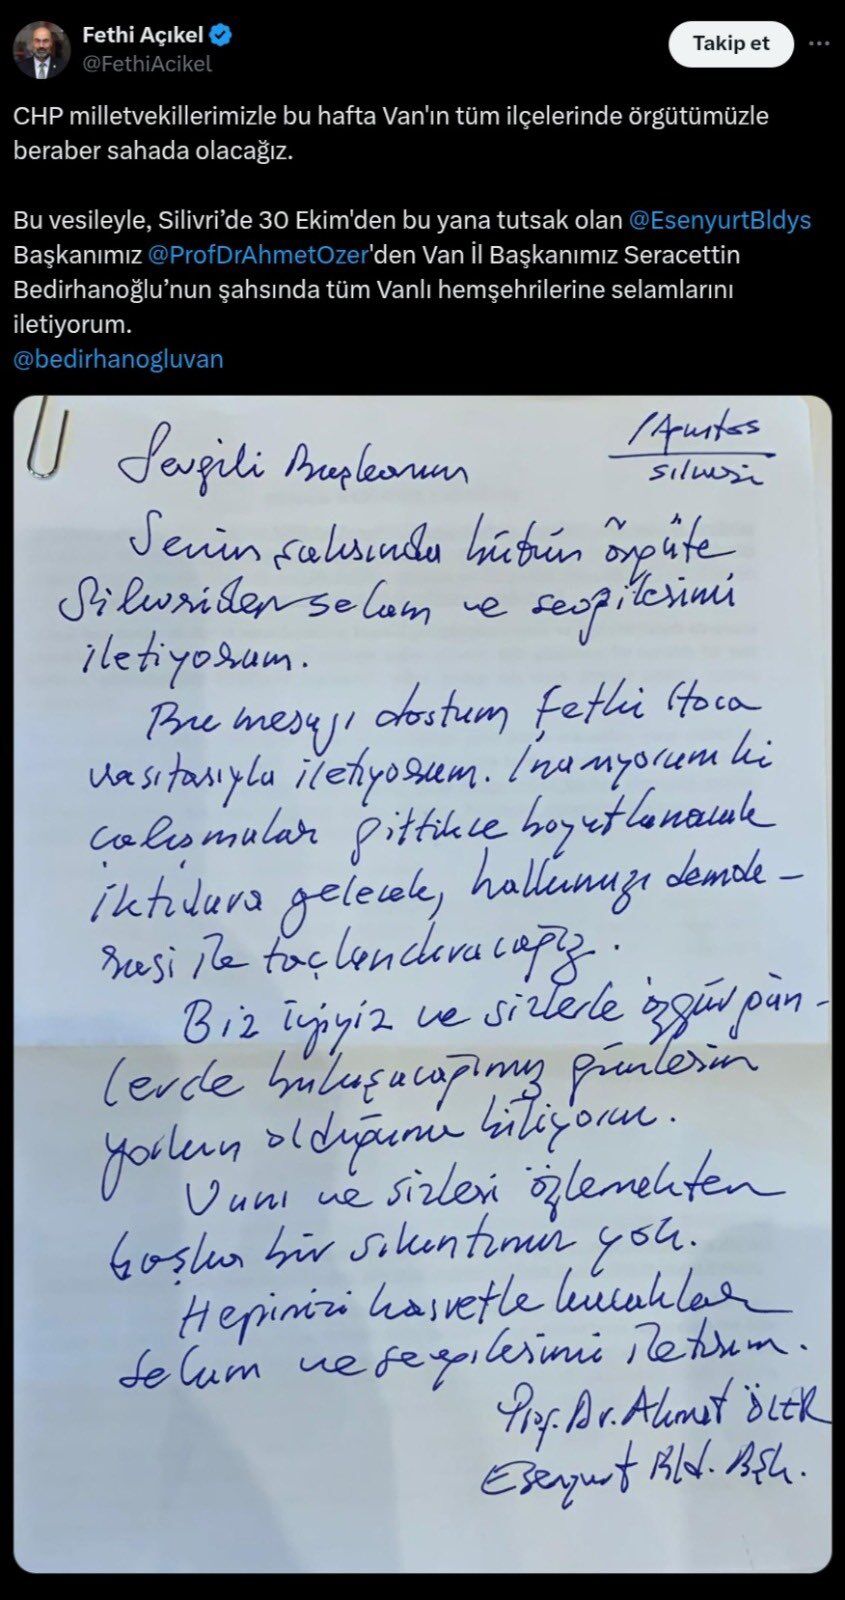 Fethi Açıkel
@FethiAcikel
Takip et
CHP milletvekillerimizle bu hafta Van'ın tüm ilçelerinde örgütümüzle
beraber sahada olacağız.
Bu vesileyle, Silivri’de 30 Ekim'den bu yana tutsak olan @EsenyurtBldys
Başkanımız @ProfDrAhmetOzer'den Van İl Başkanımız Seracettin
Bedirhanoğlu’nun şahsında tüm Vanlı hemşehrilerine selamlarını
iletiyorum.
@bedirhanogluvan
1 Ağustos
Silivri
Sevgili Başkanım
Senin şahsında bütün örgüte
Silivriden selam ve sevgilerimi
iletiyorum.
Bu mesajı dostum Fethi Hoca
vasıtasıyla iletiyorum. İnanıyorum ki
çalışmalar gittikçe boyutlanarak
iktidara gelecek, halkımızı demok-
rasi ile taçlandıracağız.
Biz iyiyiz ve sizlerle özgür gün-
lerde buluşacağımız günlerin
yakın olduğunu biliyoruz.
Vanı ve sizleri özlemekten
başka bir sıkıntımız yok.
Hepinizi hasretle kucaklar
selam ve sevgilerimi iletirim.
Prof. Dr. Ahmet ÖZER
Esenyurt Bld. Bşk.